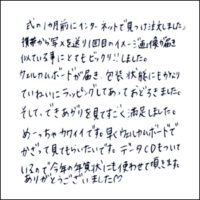 式の1か月前にインターネットで見つけ注文しました。
携帯から写メを送り1回目のイメージ画像が届き
似ている事にとてもビックリ!!しました。
ウェルカムボードが届き、包装状態にもかなり
ていねいにラッピングしてあっておどろきました。
そして、できあがりを見てすごく満足しました。
めーっちゃカワイイです。早くウェルカムボードで
かざって見てもらいたいです。データCDもついて
いるので今年の年賀状にも使わせて頂きます。
ありがとうございました♡